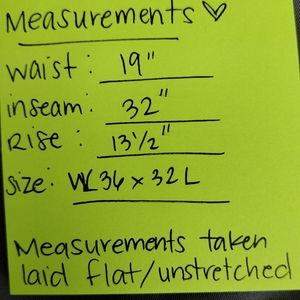 Measurements ♡
waist: 19"
inseam: 32"
Rise: 13½"
Size: W 36 x 32 L
Measurements taken
laid flat/unstretched